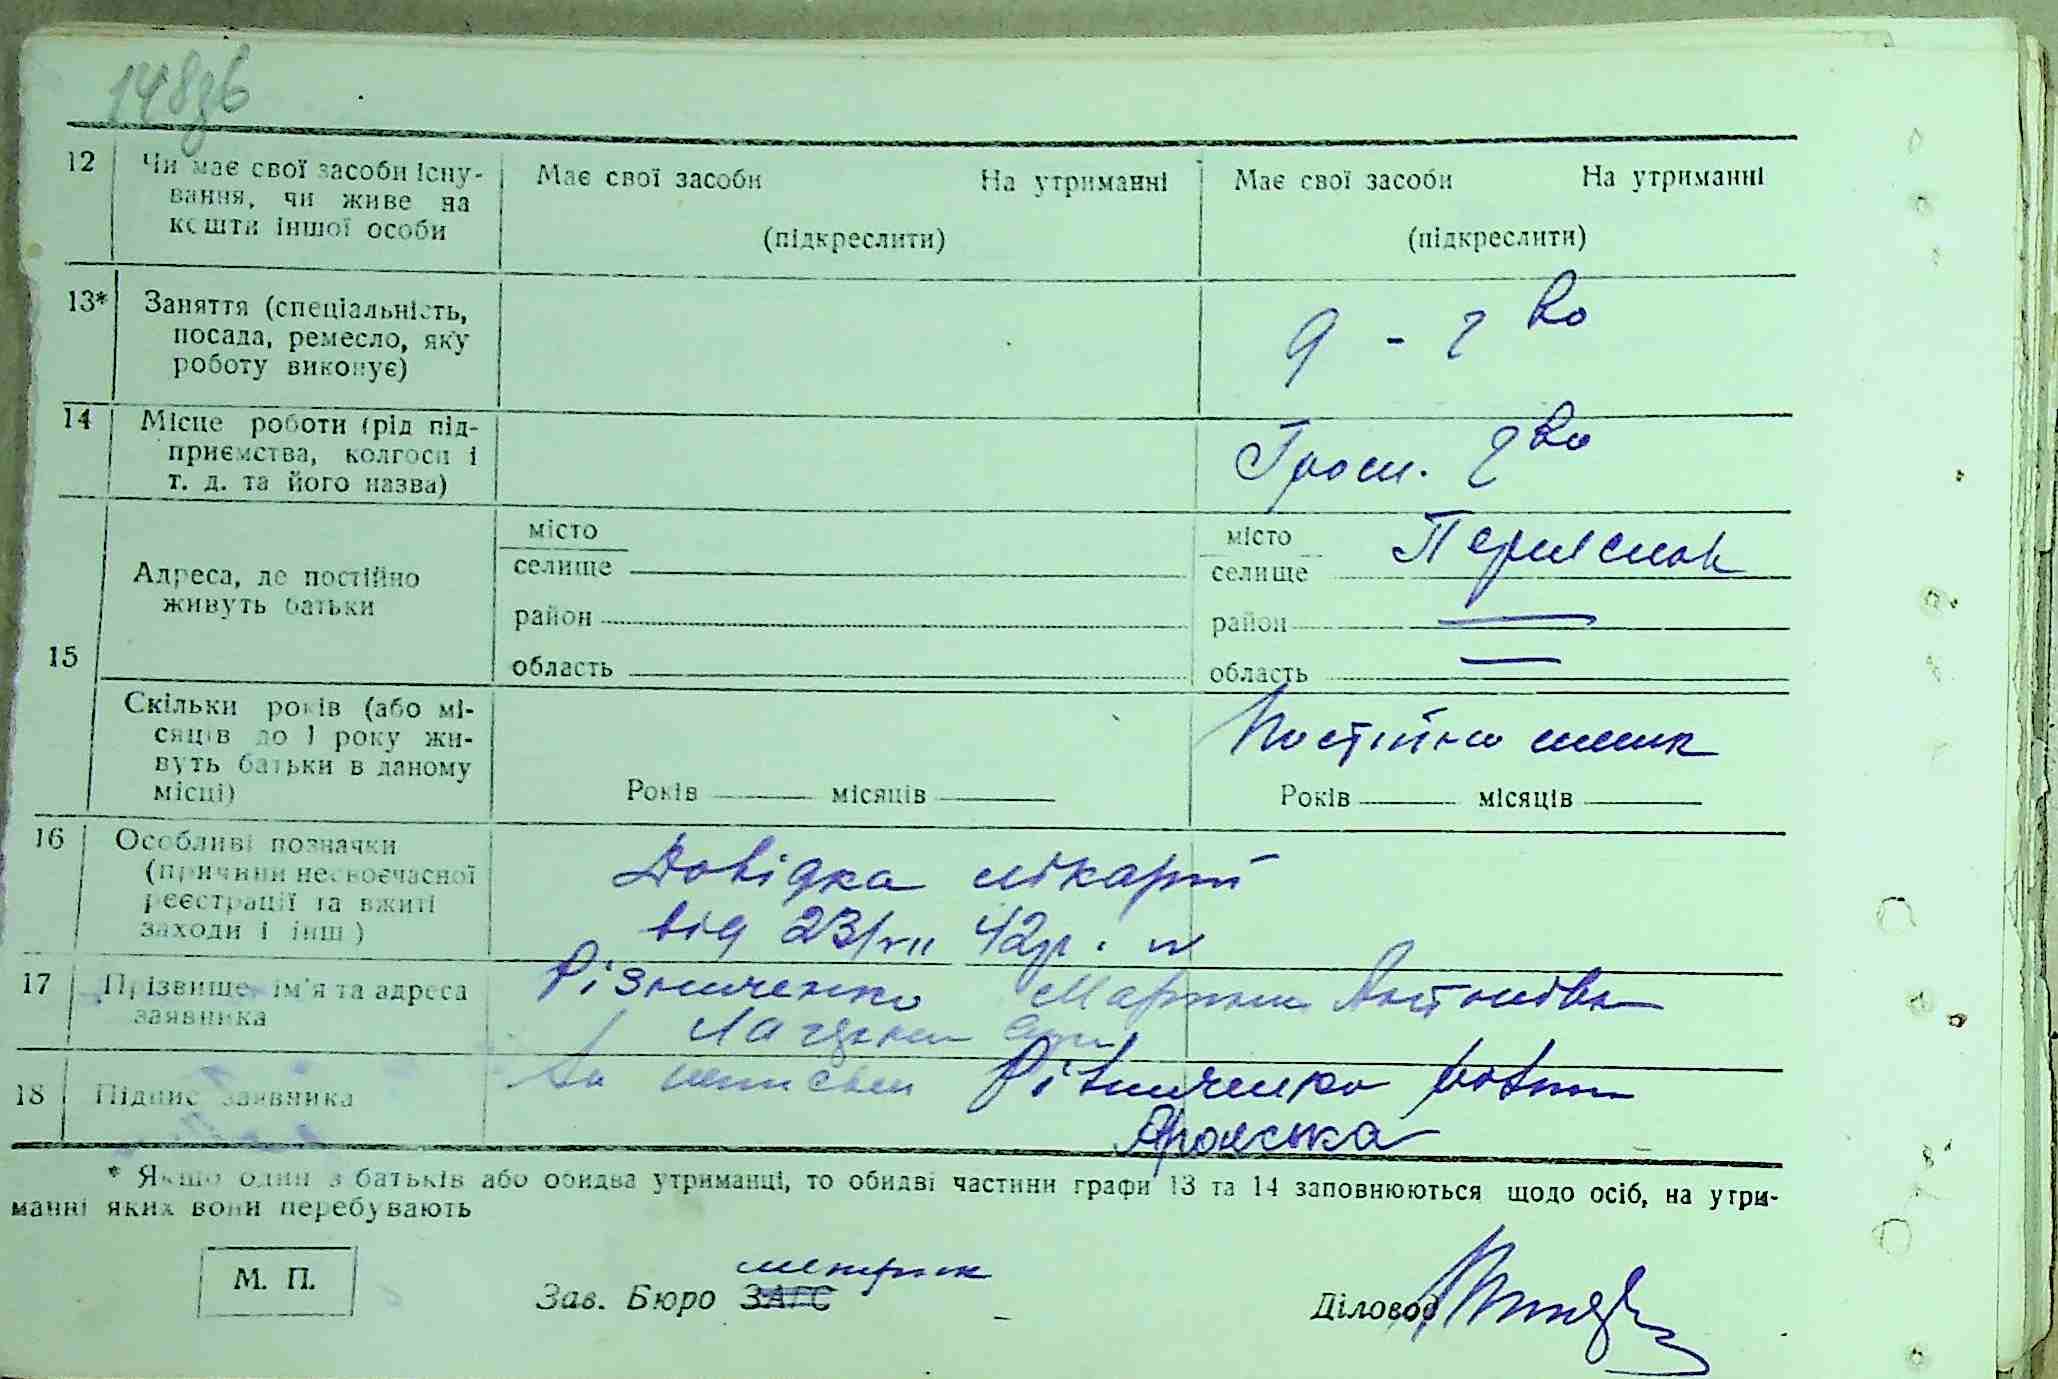 148зб
12 Чи має свої засоби існу-
вання, чи живе на
кошти іншої особи
Має свої засоби На утриманні
(підкреслити)
Має свої засоби На утриманні
(підкреслити)
13* Заняття (спеціальність,
посада, ремесло, яку
роботу виконує)
14 Місце роботи (рід під-
приємства, колгосп і
т. д. та його назва)
15 Адреса, де постійно
живуть батьки
місто
селище
район
область
місто
селище
район
область
Скільки років (або мі-
сяців до 1 року жи-
вуть батьки в даному
місці)
Років місяців
Постійно
Років місяців
16 Особливі позначки
(причини несвоєчасної
реєстрації та вжиті
заходи і інш.)
Довідка лікарні
від 23/VII 42р. №
17 Прізвище, ім'я та адреса
заявника
Різниченко Антонівна
18 Підпис заявника
Різниченко
* Якщо один з батьків або обидва утриманці, то обидві частини графи 13 та 14 заповнюються щодо осіб, на утри-
манні яких вони перебувають
М. П.
метрик
Зав. Бюро ЗАГС
Діловод